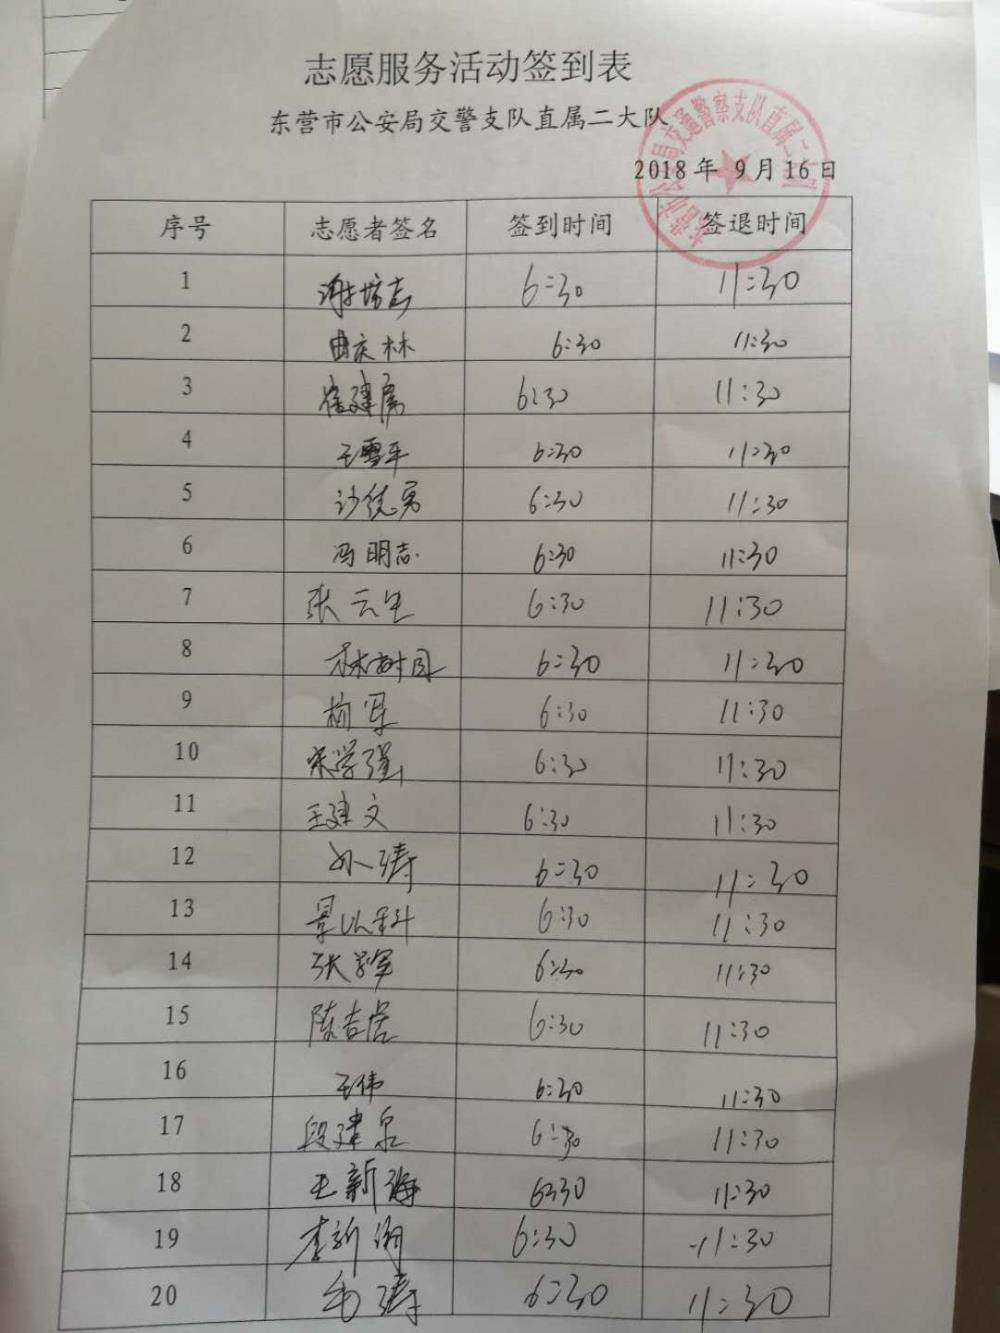 志愿服务活动签到表
东营市公安局交警支队直属二大队
2018年 9月16日
东营市公安局交通警察支队直属二大队
序号 志愿者签名 签到时间 签退时间
1 6:30 11:30
2 曲庆林 6:30 11:30
3 6:30 11:30
4 王雪平 6:30 11:30
5 6:30 11:30
6 冯明志 6:30 11:30
7 张云生 6:30 11:30
8 6:30 11:30
9 6:30 11:30
10 宋学强 6:30 11:30
11 王建文 6:30 11:30
12 孙涛 6:30 11:30
13 6:30 11:30
14 张军 6:30 11:30
15 6:30 11:30
16 王伟 6:30 11:30
17 段建泉 6:30 11:30
18 王新海 6:30 11:30
19 6:30 11:30
20 毛涛 6:30 11:30